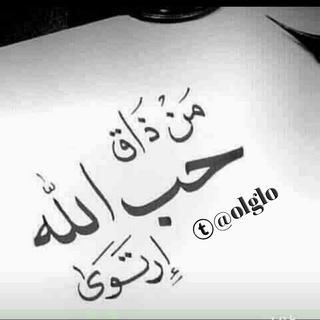 مَنْ ذَاق
حب الله
إرتَوَىٰ
t @olglo